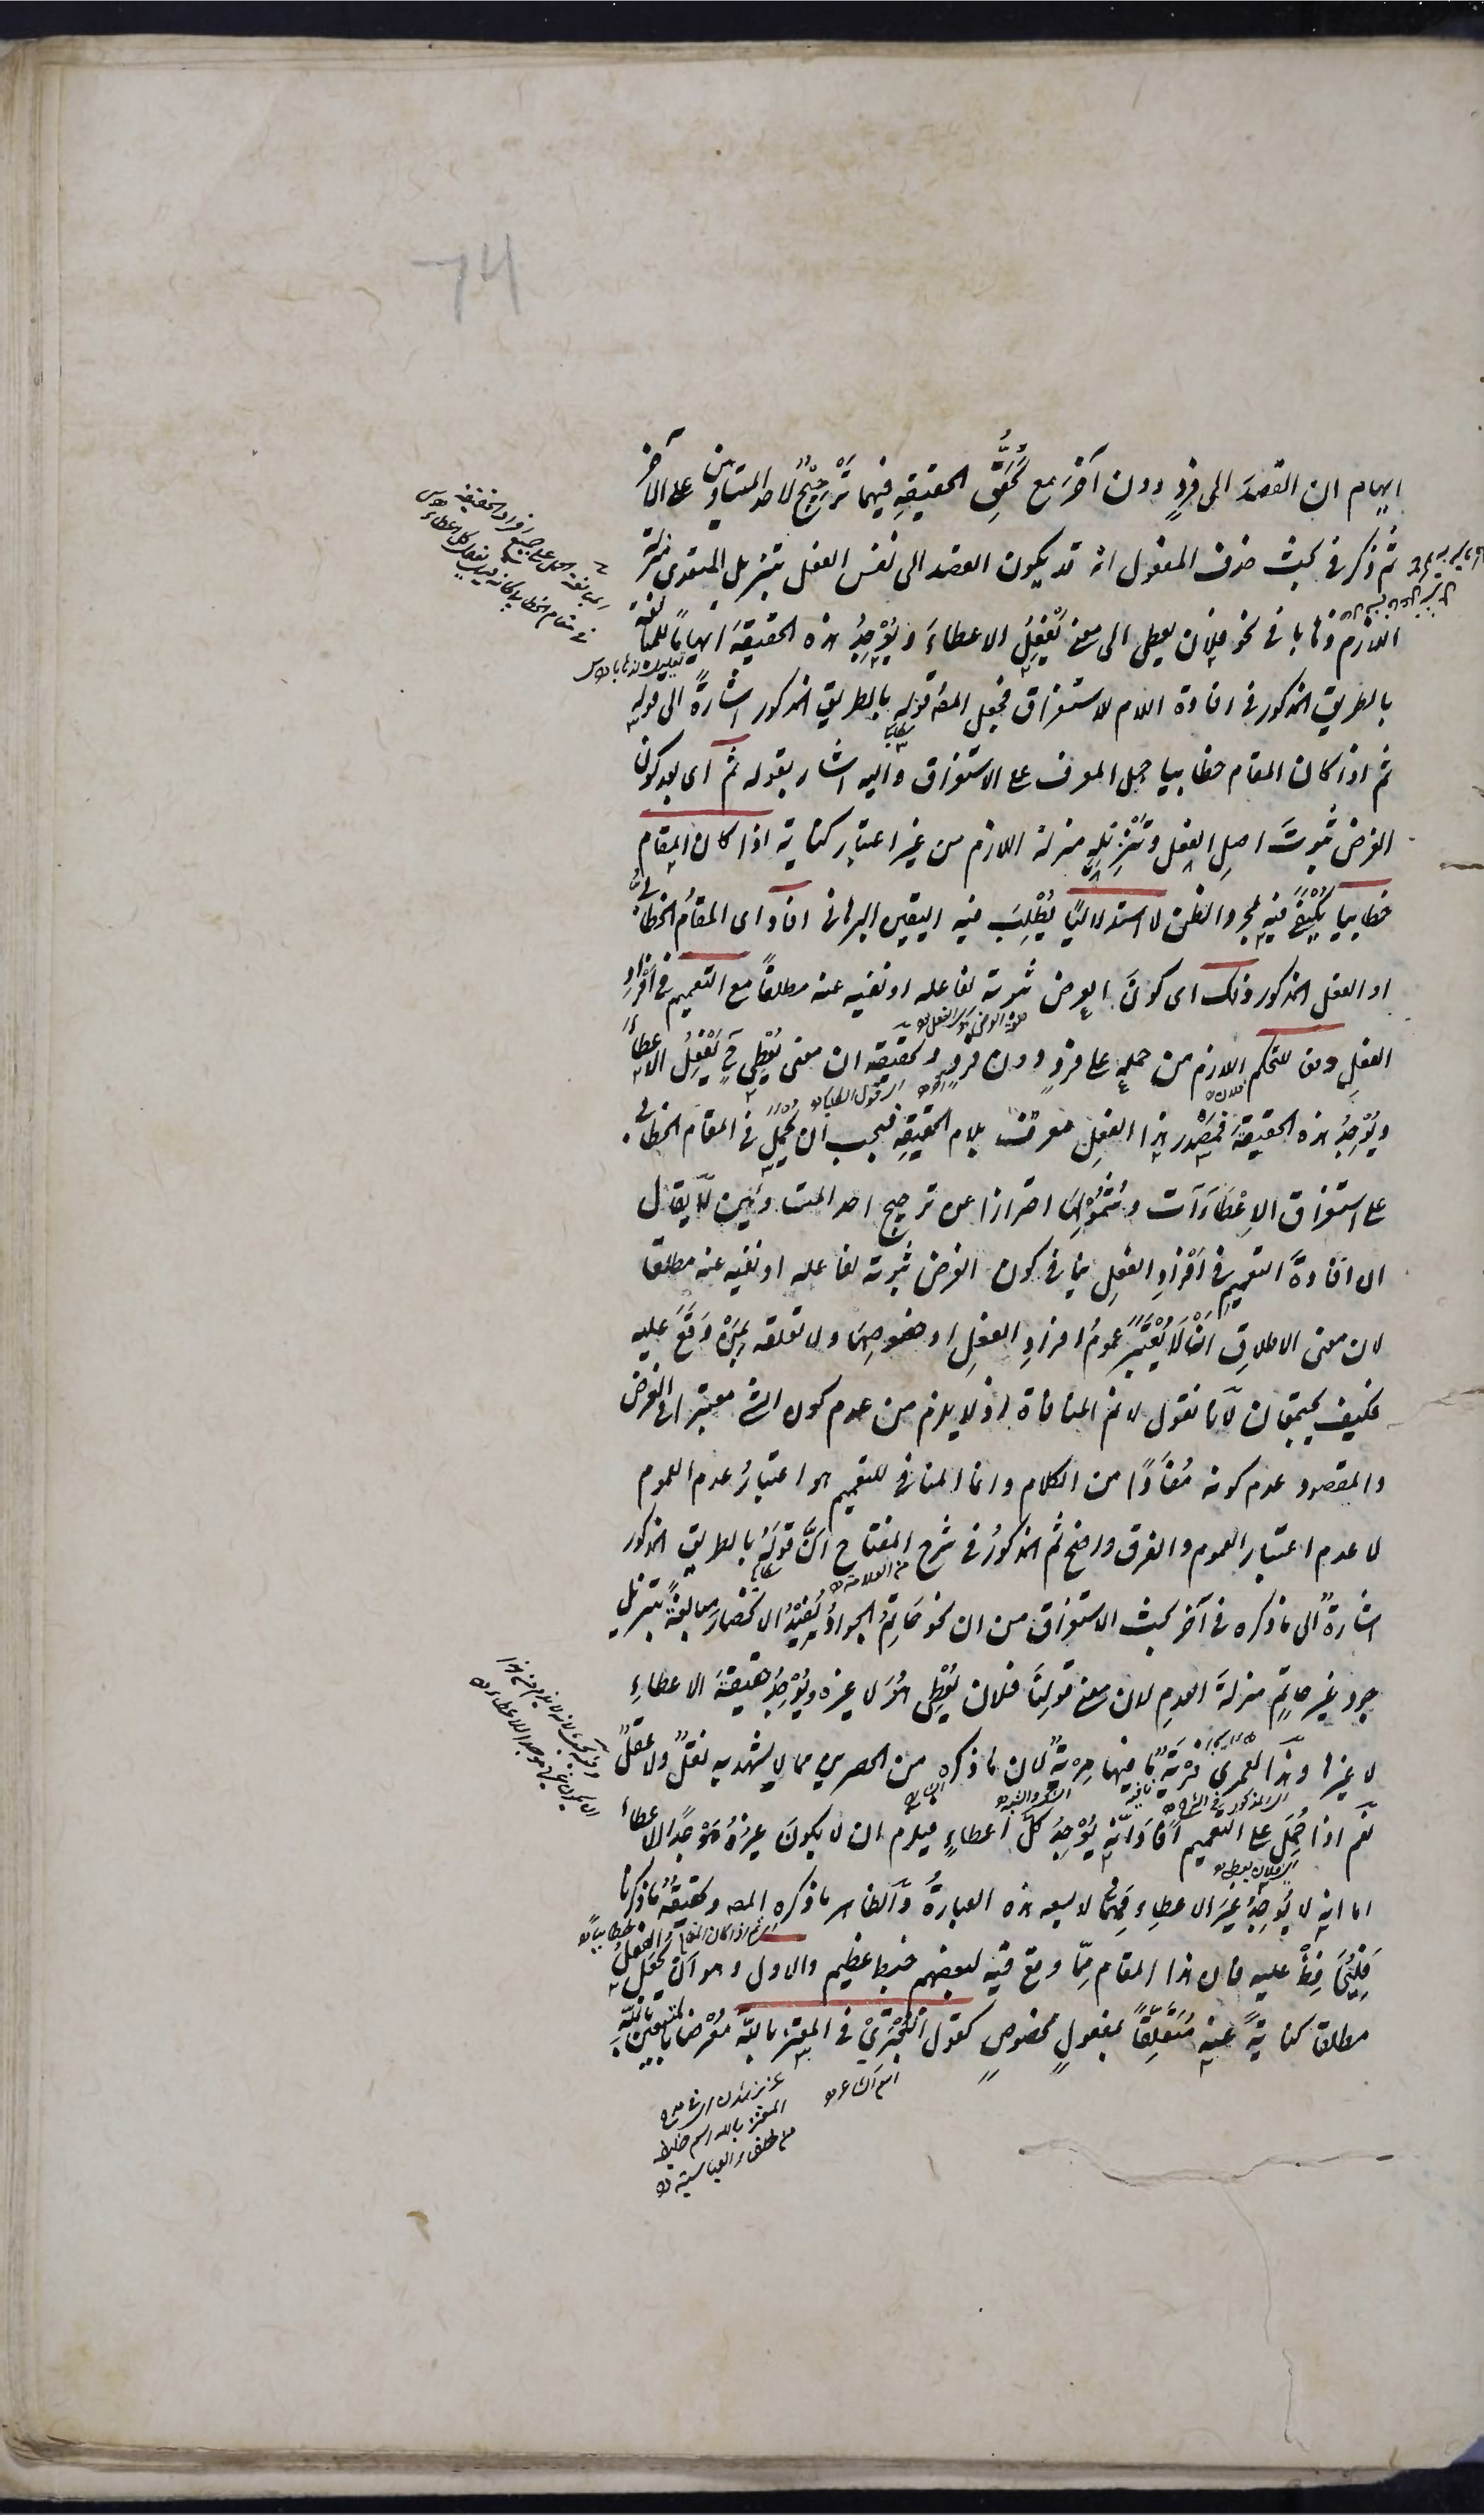 74
ايهام ان القصدَ الى فردٍ دون آخَرَ مع تحقُّقِ الحقيقةِ فيهما تَرْجِيْحٌ لاحد المتساويين على الآخر
ثم ذكر فى بحث حذف المفعول انه قد يكون القصد الى نفس الفعل بتنزيل المتعدى منزلة
اللازم ذهابا فى نحو فلان يعطى الى معنى يَفْعِلُ الاعطاءَ ويُوْجِدُ هذه الحقيقةَ ايهاماً للمبالغة
بالطريق المذكور فى افادة اللام للاستغراق فجعل المصـ قوله بالطريق المذكور اشارةً الى قوله
ثم اذا كان المقام خطابيا حمل المعرف على الاستغراق واليه اشار بقوله ثم اى بعد كون
الغرض ثبوتَ اصلِ الفعل وتَنْزِيْلِهِ منزلة اللازم من غير اعتبار كناية اذا كان المقام
خطابيا يُكْتَفىٰ فيه بمجرد الظن لا استدلاليًا يُطْلَبُ فيه اليقين البرهانى افاد اى المقامُ الخطابىُّ
او الفعل المذكور ذلك اى كونَ الغرض ثبوته لفاعله او نفيه عنه مطلقاً مع التعميم فى افرادِ
الفعلِ دفعا للتحكم اللازم من حملهِ على فردٍ دون فردٍ وتحقيقه ان معنى يُعْطِى ح يَفْعِلُ الاعطاءَ
ويُوْجِدُ هذه الحقيقةَ فمَصْدر هذا الفعلِ معرّف بلام الحقيقةِ فيجب ان يُحْمَلَ فى المقام الخطابى
على استغراق الاِعْطَاءَاتِ وشُمُوْلِهَا احترازا عن ترجيح احد المتساويين لا يقال
ان افادةَ التعميم فى اَفْرَادِ الفعلِ ينافى كون الغرض ثبوته لفاعله او نفيه عنه مطلقا
لان معنى الاطلاقِ اَنْ لَا يُعْتَبَرَ عمومُ افرادِ الفعلِ او خصوصِهَا ولا تعلقه بِمَنْ وَقَعَ عليه
فكيف يجتمعان لانا نقول لا نم المنافاة اذ لا يلزم من عدم كون الشئ معتبرا فى الغرض
والمقصود عدم كونه مُفَادًا من الكلام وانما المنافى للتعميم هو اعتبارُ عدم العموم
لا عدم اعتبار العموم والفرق واضح ثم المذكورُ فى شرح المفتاح اَنَّ قولَهُ بالطريق المذكور
اشارةٌ الى ما ذكره فى آخر بحث الاستغراق من ان نحو حَاتِمُ الجوادُ يُفِيْدُ الانحصارَ مبالغةً بتنزيل
جود غير حاتمٍ منزلةَ العدمِ لان معنى قولِنَا فلان يُعْطِى هُوَ لا غيره ويُوْجِدُ حقيقةَ الاعطاءِ
لا غيرها وهذا لعمرى فِرْيَةٌ ما فيها مِرْيَةٌ لان ما ذكره من الحصرين مما لا يشهد به نقلٌ ولا عقلٌ
نعم اذا حُمِلَ على التعميم افاد انّه يُوْجِدُ كلَّ اعطاءٍ فيلزم ان لا يكونَ غيرُهُ مُوْجِدًا للاعطاءِ
اما انه لا يُوجِدُ غيرَ الاعطاء فممّا لا يسعه هذه العبارةُ والظاهر ما ذكره المصـ وتحقيقُهُ ما ذكرنا
فَلْيُحَافَظْ عليه فان هذا المقام مِمّا وقع فيه لبعضهم خبط عظيم والاول وهو اَنْ يُجْعَلَ الفعلُ
مطلقا كنايةً عنه مُتَعَلِّقًا بمفعولٍ مخصوصٍ كقول البُحْتُرِىْ فى المعتز باللّه مُعْرِضًا بالمستعين باللّه
المعتز بالله اسم خليفة